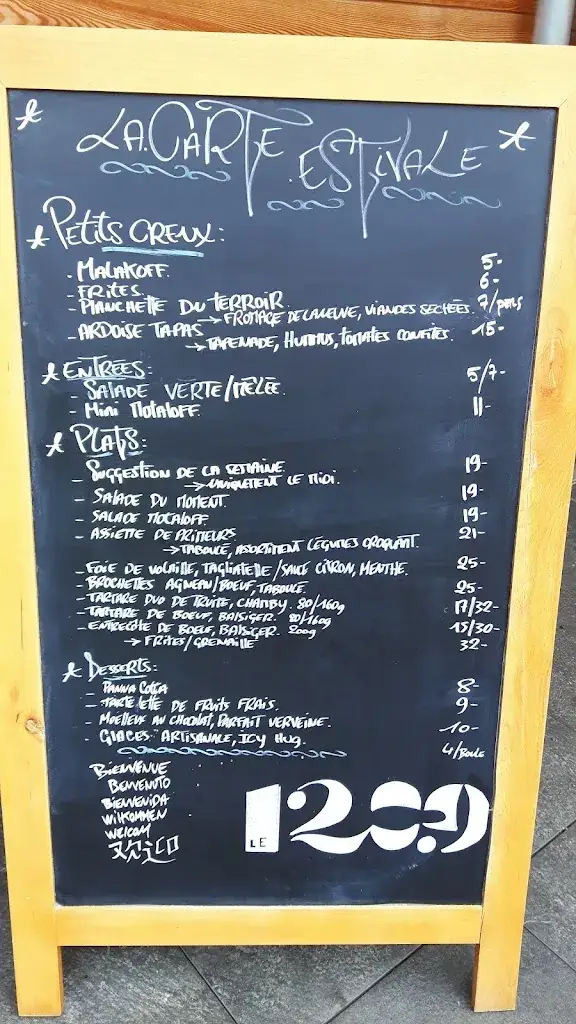 LA CARTE ESTIVALE
Petits CREUX:
- MALAKOFF. 5-
- FRITES. 6-
- PLANCHETTE DU TERROIR 7/PERS
→ FROMAGE DE LAMEUVE, VIANDES SECHÉES.
- ARDOISE TAPAS 15-
→ TAPENADE, HUMMUS, TOMATES CONFITES.
ENTRÉES:
- SALADE VERTE/MÊLÉE. 5/7-
- Mini MOTALOFF 11-
PLATS:
- SUGGESTION DE LA SEMAINE 19-
→ UNIQUEMENT LE MIDI.
- SALADE DU MOMENT. 19-
- SALADE MOTALOFF 19-
- ASSIETTE DE PRIMEURS 21-
→ TABOULÉ, ASSORTIMENT LÉGUMES CROQUANT.
- FOIE DE VOLAILLE, TAGLIATELLE/SAUCE CITRON, MENTHE. 25-
- BROCHETTES AGNEAU/BOEUF, TABOULÉ. 25-
- TARTARE DUO DE TRUITE, CHAMBY. 80/160g 17/32-
- TARTARE DE BOEUF, BALSIGER. 80/160g 15/30-
- ENTRECÔTE DE BOEUF, BALSIGER. 200g 32-
→ FRITES/GRENAILLE
DESSERTS:
- PANNA COTTA 8-
- TARTELETTE DE FRUITS FRAIS. 9-
- MOELLEUX AU CHOCOLAT, PARFAIT VERVEINE. 10-
- GLACES ARTISANALE, ICY HUG. 4/BOULE
BIENVENUE
BENVENUTO
BIENVENIDA
WILKOMMEN
WELCOM
LE 1209